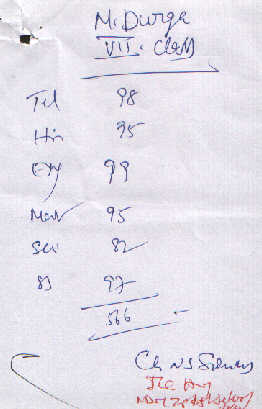 M. Durga
VII. Class
Tel 98
Hin 95
Eng 99
Mat 95
Sci 82
SS 97
566